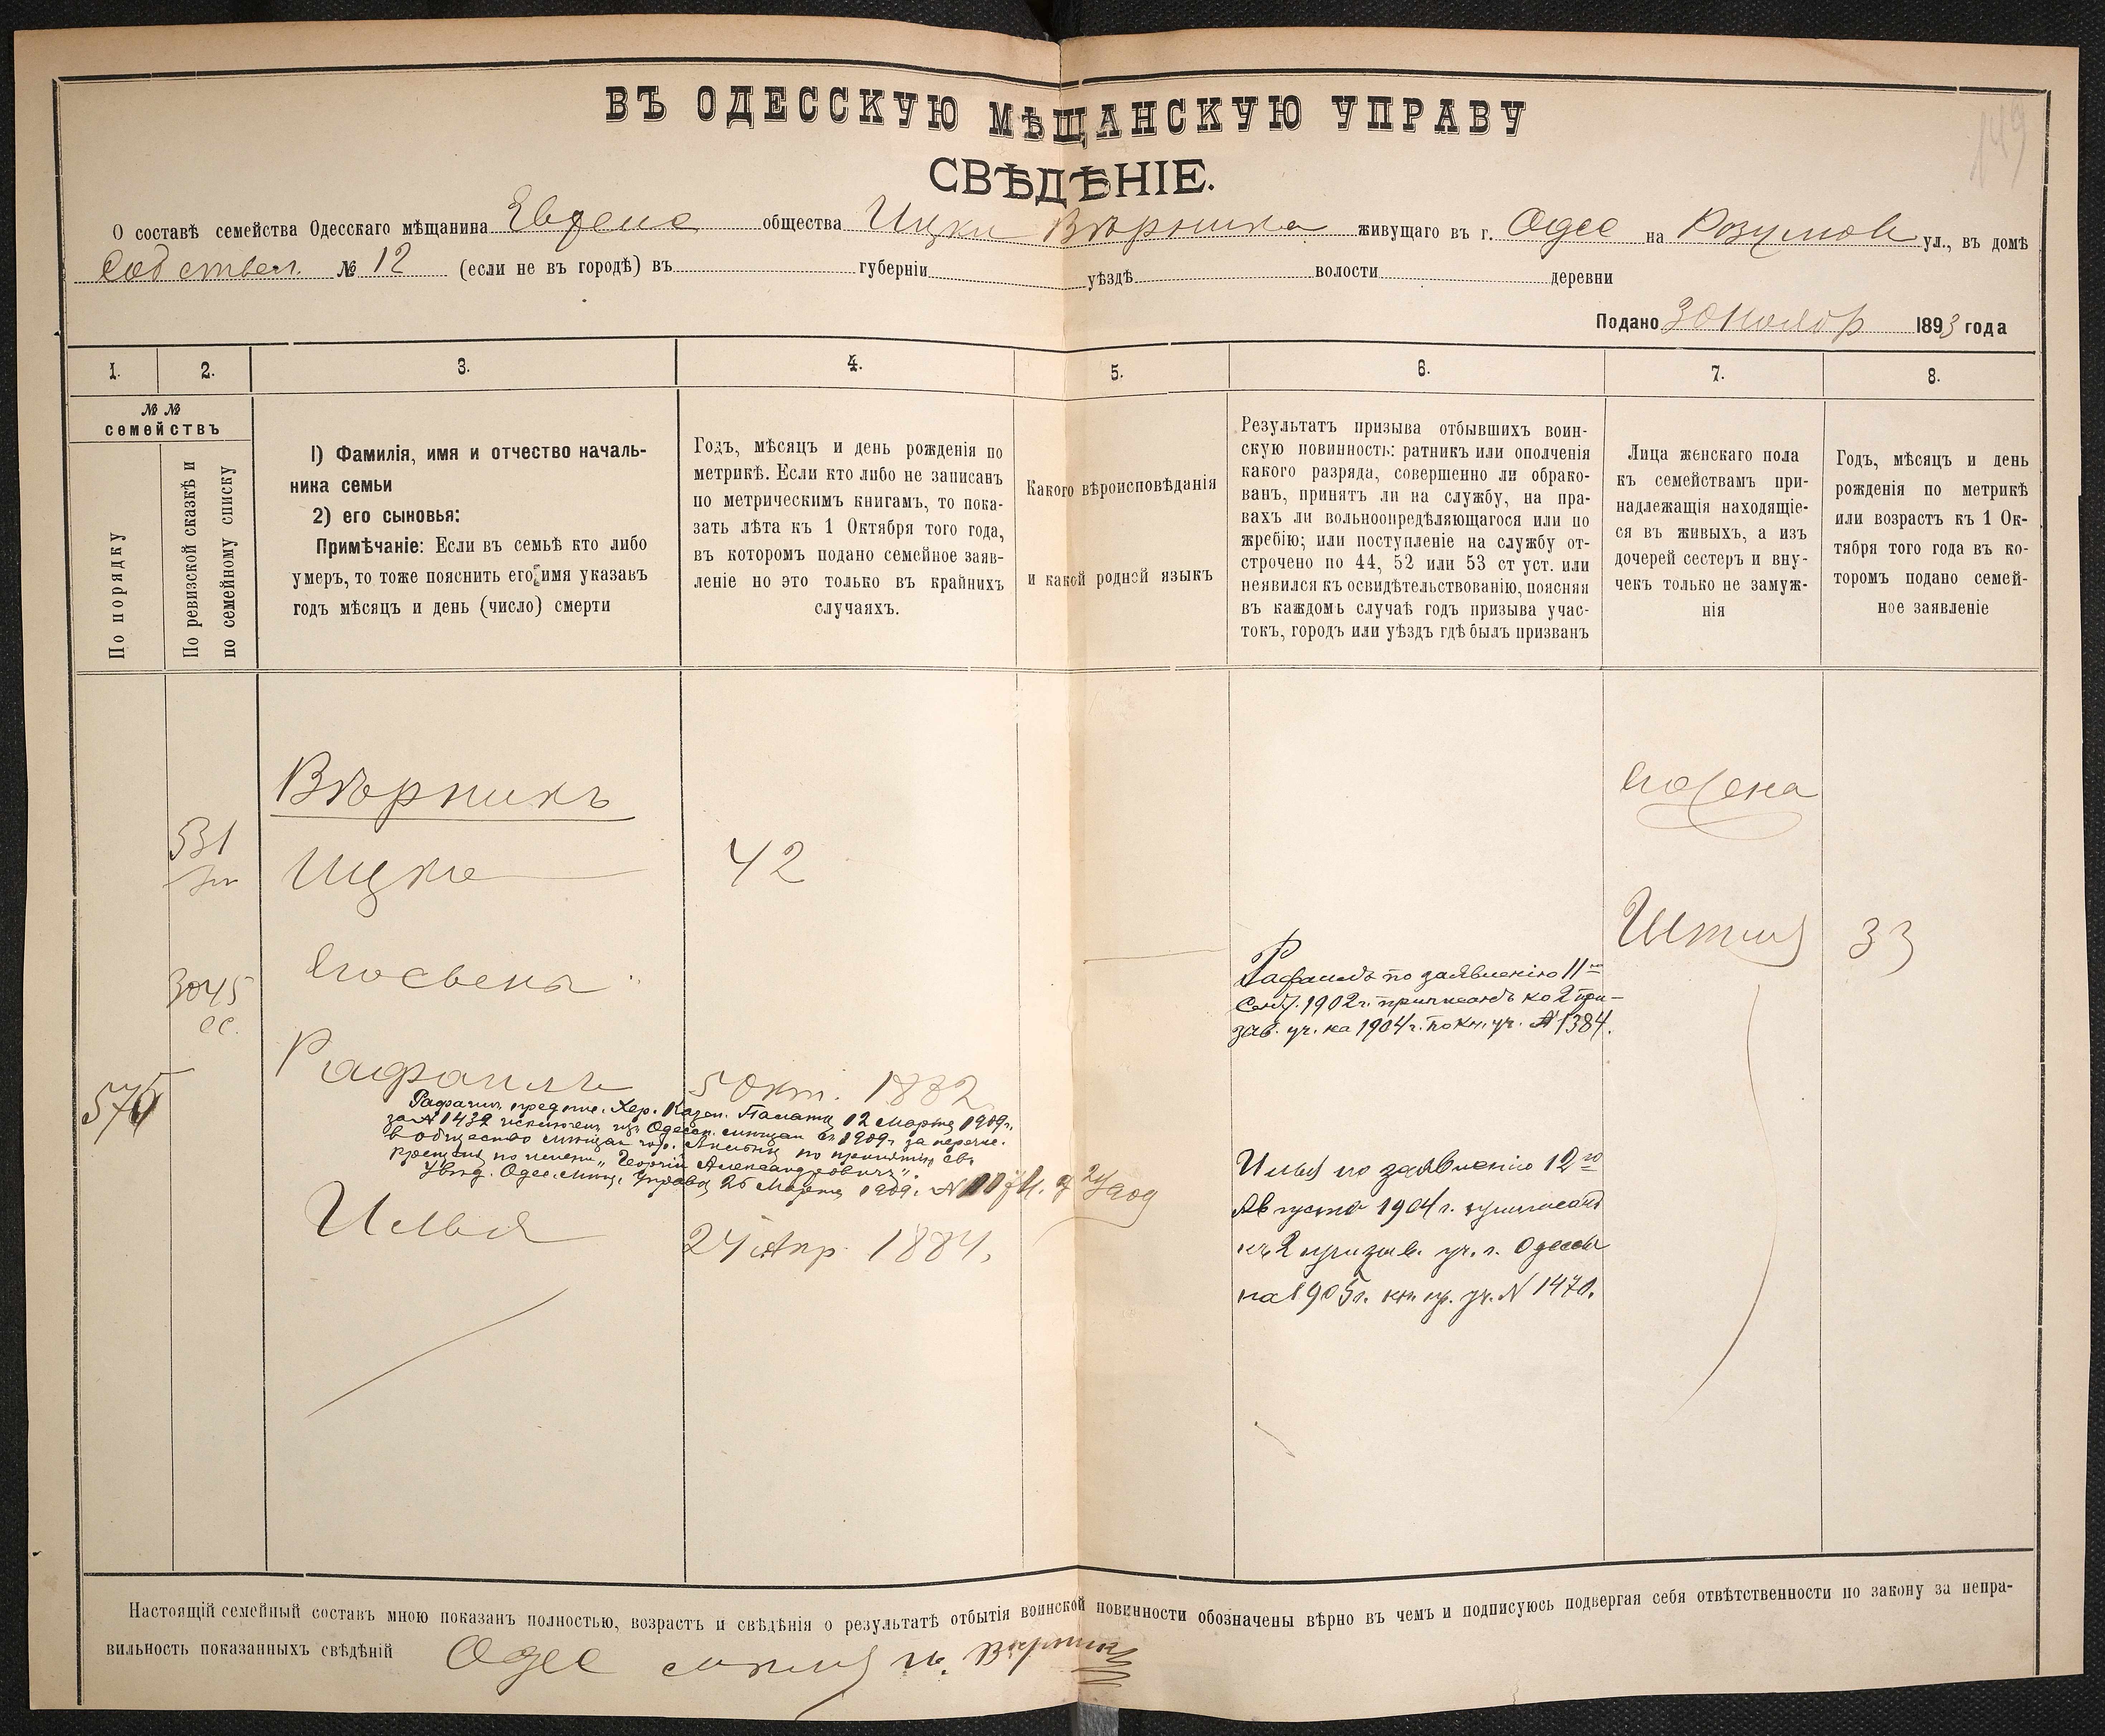 149
ВЪ ОДЕССКУЮ МѢЩАНСКУЮ УПРАВУ
СВѢДѢНІЕ.
О составѣ семейства Одесскаго мѣщанина Еврейс общества Ицки Вѣрника живущаго въ г. Одес на Розумов ул., въ домѣ
Собствен. № 12 (если не въ городѣ) въ губерніи уѣздѣ волости деревни
Подано 30 Ноябр 1893 года
1. 2. 3. 4. 5. 6. 7. 8.
№ №
семействъ
По порядку
По ревизской сказкѣ и
по семейному списку
1) Фамилія, имя и отчество началь-
ника семьи
2) его сыновья:
Примѣчаніе: Если въ семьѣ кто либо
умеръ, то тоже пояснить его имя указавъ
годъ мѣсяцъ и день (число) смерти
Годъ, мѣсяцъ и день рожденія по
метрикѣ. Если кто либо не записанъ
по метрическимъ книгамъ, то пока-
зать лѣта къ 1 Октября того года,
въ которомъ подано семейное заяв-
леніе но это только въ крайнихъ
случаяхъ.
Какого вѣроисповѣданія
и какой родной языкъ
Результатъ призыва отбывшихъ воин-
скую повинность: ратникъ или ополченія
какого разряда, совершенно ли обрако-
ванъ, принятъ ли на службу, на пра-
вахъ ли вольноопредѣляющагося или по
жребію; или поступленіе на службу от-
строчено по 44, 52 или 53 ст уст. или
неявился къ освидѣтельствованію, поясняя
въ каждомъ случаѣ годъ призыва учас-
токъ, городъ или уѣздъ гдѣ былъ призванъ
Лица женскаго пола
къ семействамъ при-
надлежащія находящіе-
ся въ живыхъ, а изъ
дочерей сестеръ и вну-
чекъ только не замуж-
нія
Годъ, мѣсяцъ и день
рожденія по метрикѣ
или возрастъ къ 1 Ок-
тября того года въ ко-
торомъ подано семей-
ное заявленіе
Вѣрникъ
531
Ицко 42
3045
сс.
576
Рафаилъ 5 Окт. 1882
Рафаилъ предпис. Хер. Казен. Палаты 12 Марта 1909г.
за № 1432 исключенъ изъ Одесск. мѣщан съ 1909г. за перечис.
в общество мѣщан гор. по принятіи св.
крещенія по имени „Георгій Александровичъ“.
Увѣд. Одес. Мѣщ. Управы 26 Марта 1909г. №
Илья 24 Апр. 1884.
Рафаилъ по заявленію 11го
Сент. 1902г. приписанъ ко 2 при-
зыв. уч. на 1904г. по кн. уч. № 1384.
Илья по заявленію 12го
Августа 1904г. приписанъ
къ 2 призыв. уч. г. Одессы
на 1905г. кн. пр. уч. N 1470.
Жена
33
Настоящій семейный составъ мною показанъ полностью, возрастъ и свѣдѣнія о результатѣ отбытія воинской повинности обозначены вѣрно въ чемъ и подписуюсь подвергая себя отвѣтственности по закону за непра-
вильность показанныхъ свѣдѣній Одес мѣщ И. Вѣрникъ